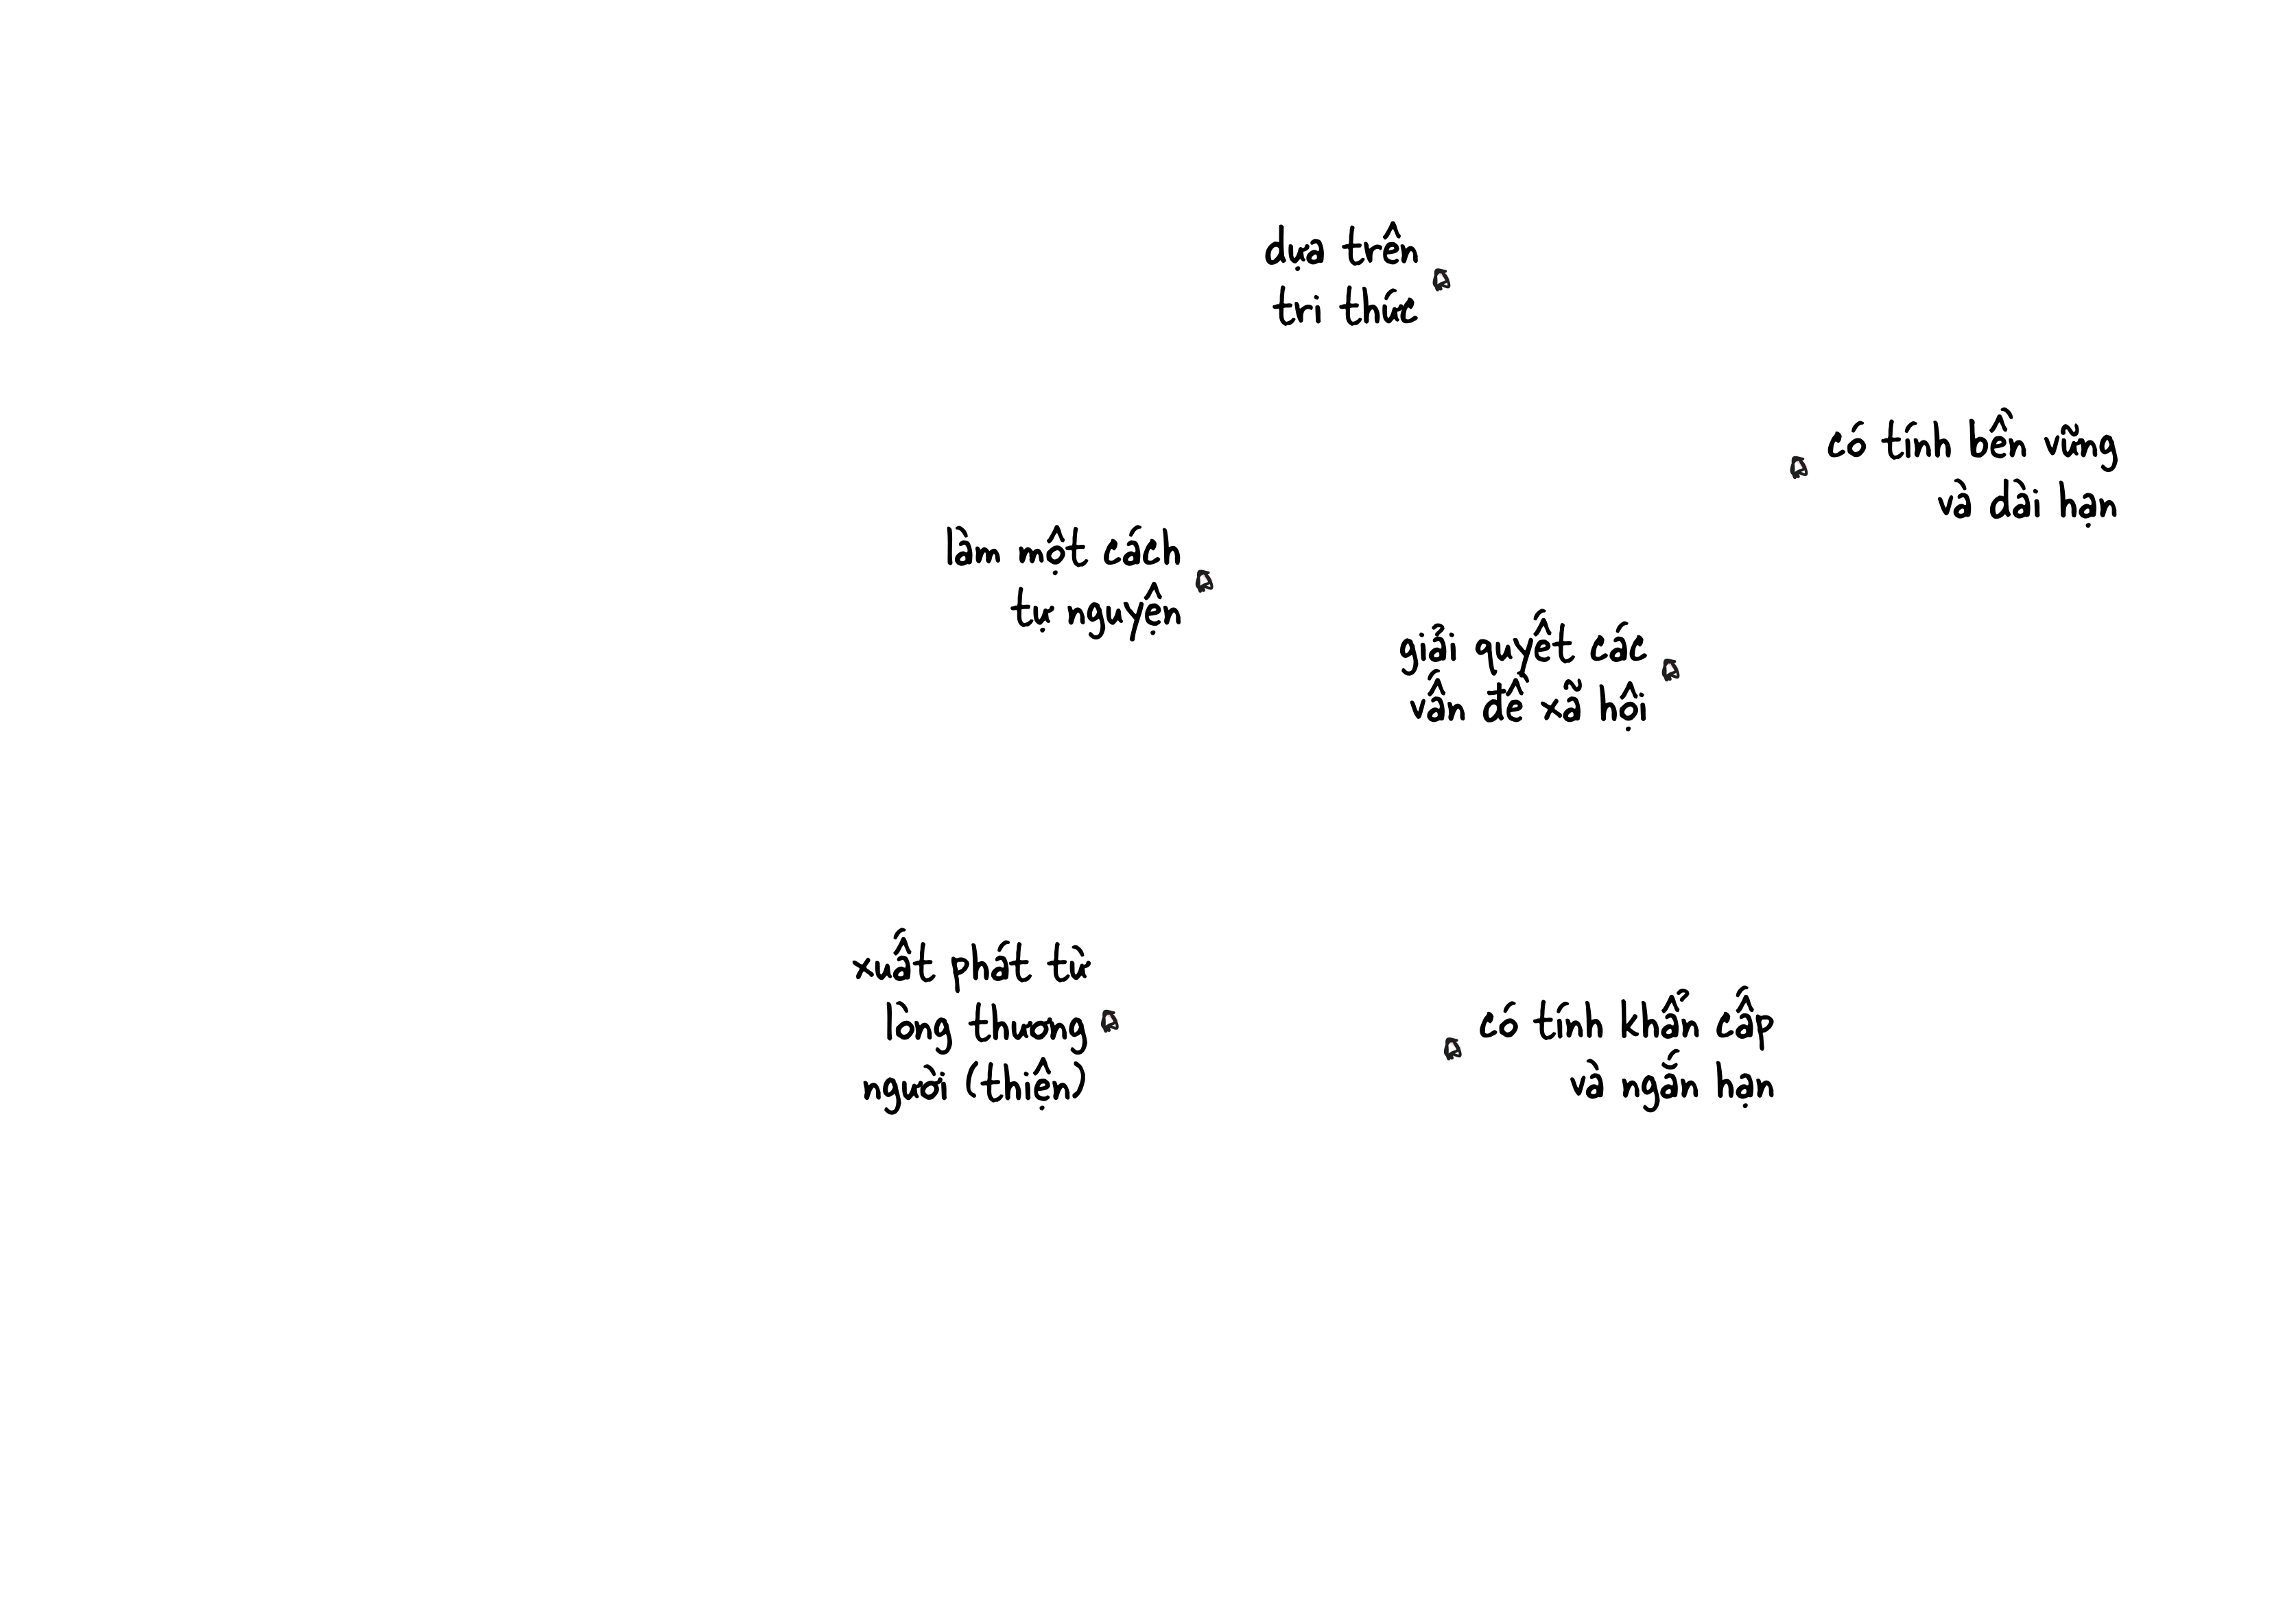 dựa trên
tri thức
có tính bền vững
và dài hạn
làm một cách
tự nguyện
giải quyết các
vấn đề xã hội
xuất phát từ
lòng thương
người (thiện)
có tính khẩn cấp
và ngắn hạn